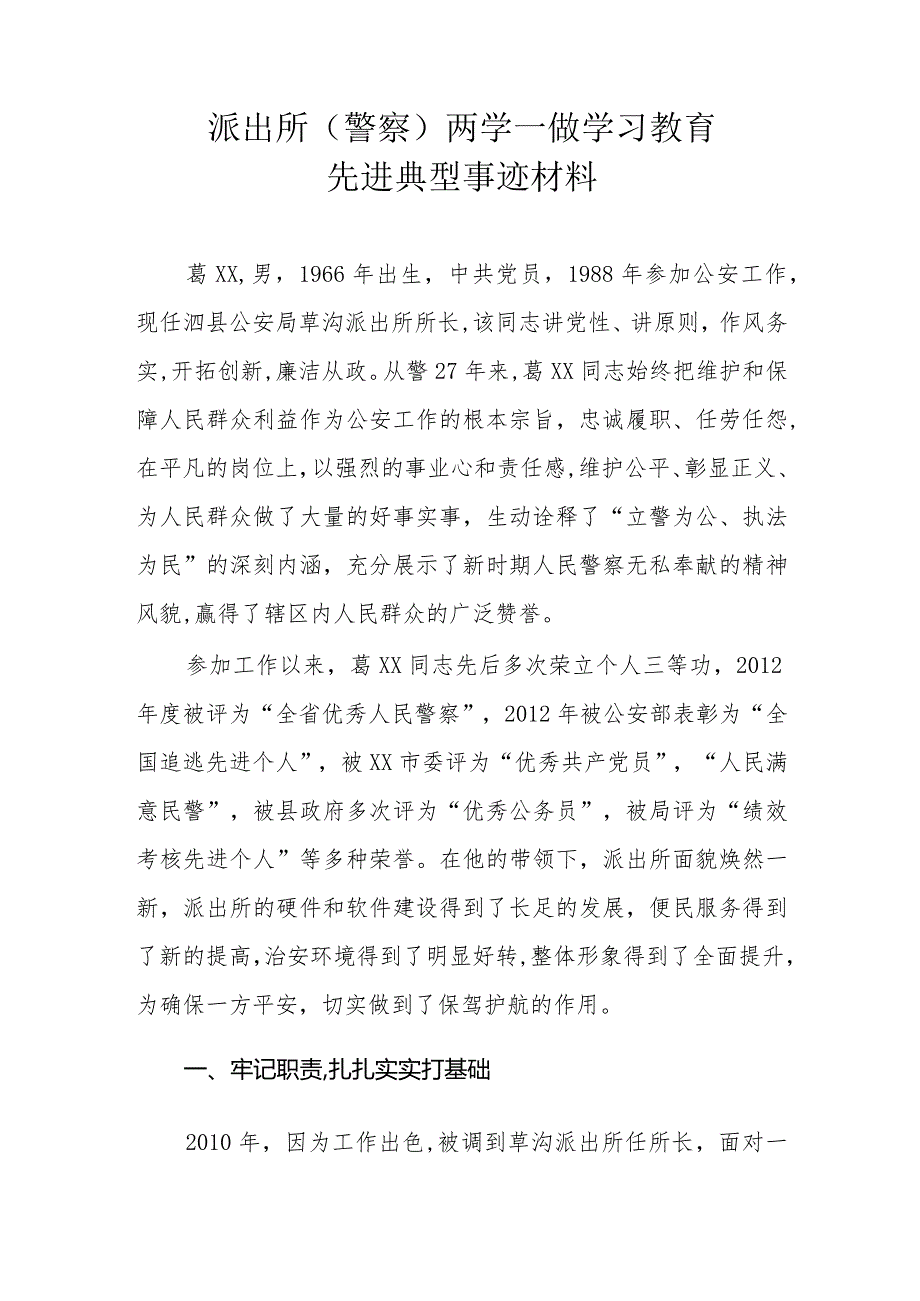 派出所（警察）两学一做学习教育
先进典型事迹材料
葛 XX,男，1966 年出生，中共党员，1988 年参加公安工作，
现任泗县公安局草沟派出所所长,该同志讲党性、讲原则，作风务
实,开拓创新,廉洁从政。从警 27 年来,葛 XX 同志始终把维护和保
障人民群众利益作为公安工作的根本宗旨，忠诚履职、任劳任怨,
在平凡的岗位上，以强烈的事业心和责任感,维护公平、彰显正义、
为人民群众做了大量的好事实事，生动诠释了“立警为公、执法
为民”的深刻内涵，充分展示了新时期人民警察无私奉献的精神
风貌,赢得了辖区内人民群众的广泛赞誉。
参加工作以来，葛 XX 同志先后多次荣立个人三等功，2012
年度被评为“全省优秀人民警察”，2012 年被公安部表彰为“全
国追逃先进个人”，被 XX 市委评为“优秀共产党员”，“人民满
意民警”，被县政府多次评为“优秀公务员”，被局评为“绩效
考核先进个人”等多种荣誉。在他的带领下，派出所面貌焕然一
新，派出所的硬件和软件建设得到了长足的发展，便民服务得到
了新的提高,治安环境得到了明显好转,整体形象得到了全面提升，
为确保一方平安，切实做到了保驾护航的作用。
一、牢记职责,扎扎实实打基础
2010 年，因为工作出色,被调到草沟派出所任所长，面对一